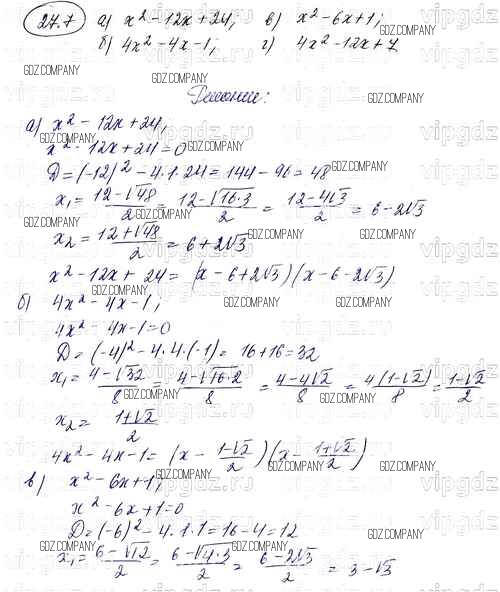 27.7 а) x² - 12x + 24; в) x² - 6x + 1;
б) 4x² - 4x - 1; г) 4x² - 12x + 7
Решение:
а) x² - 12x + 24;
x² - 12x + 24 = 0
D = (-12)² - 4·1·24 = 144 - 96 = 48
x₁ = (12 - √48)/2 = (12 - √(16·3))/2 = (12 - 4√3)/2 = 6 - 2√3
x₂ = (12 + √48)/2 = 6 + 2√3
x² - 12x + 24 = (x - 6 + 2√3)(x - 6 - 2√3)
б) 4x² - 4x - 1;
4x² - 4x - 1 = 0
D = (-4)² - 4·4·(-1) = 16 + 16 = 32
x₁ = (4 - √32)/8 = (4 - √(16·2))/8 = (4 - 4√2)/8 = 4(1 - √2)/8 = (1 - √2)/2
x₂ = (1 + √2)/2
4x² - 4x - 1 = (x - (1 - √2)/2)(x - (1 + √2)/2)
в) x² - 6x + 1;
x² - 6x + 1 = 0
D = (-6)² - 4·1·1 = 16 - 4 = 12
x₁ = (6 - √12)/2 = (6 - √(4·3))/2 = (6 - 2√3)/2 = 3 - √3
GDZ.COMPANY
vipgdz.ru